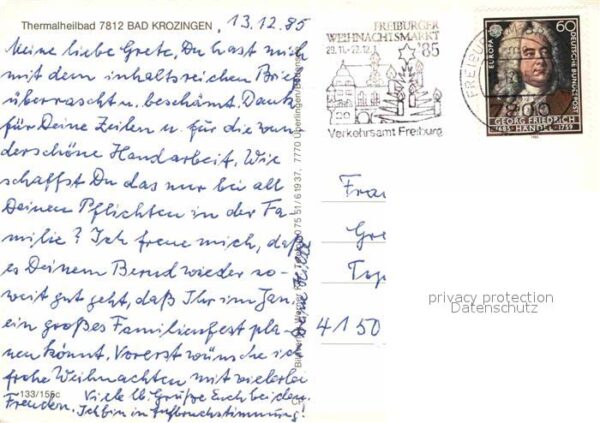 Thermalheilbad 7812 BAD KROZINGEN
13.12.85
Meine liebe Grete, Du hast mich
mit dem inhaltsreichen Brief
überrascht u. beschämt. Dank
für Deine Zeilen u. für die wun-
derschöne Handarbeit. Wie
schaffst Du das nur bei all
Deinen Pflichten in der Fa-
milie? Ich freue mich, daß
es Deinem Bernd wieder so-
weit gut geht, daß Ihr im Jan.
ein großes Familienfest pla-
nen könnt. Vorerst wünsche ich
frohe Weihnachten mit vielerlei
Freuden. Viele lb. Grüße Euch beiden.
Ich bin in Aufbruchstimmung!
Deine
133/155c
75 51/61937, 7770 Überlingen/Bodensee
FREIBURGER
WEIHNACHTSMARKT
'85
Verkehrsamt Freiburg
FREIBURG
7800
EUROPA
60
DEUTSCHE BUNDESPOST
GEORG FRIEDRICH
1685 HÄNDEL 1759
Frau
Gre
4150
privacy protection
Datenschutz